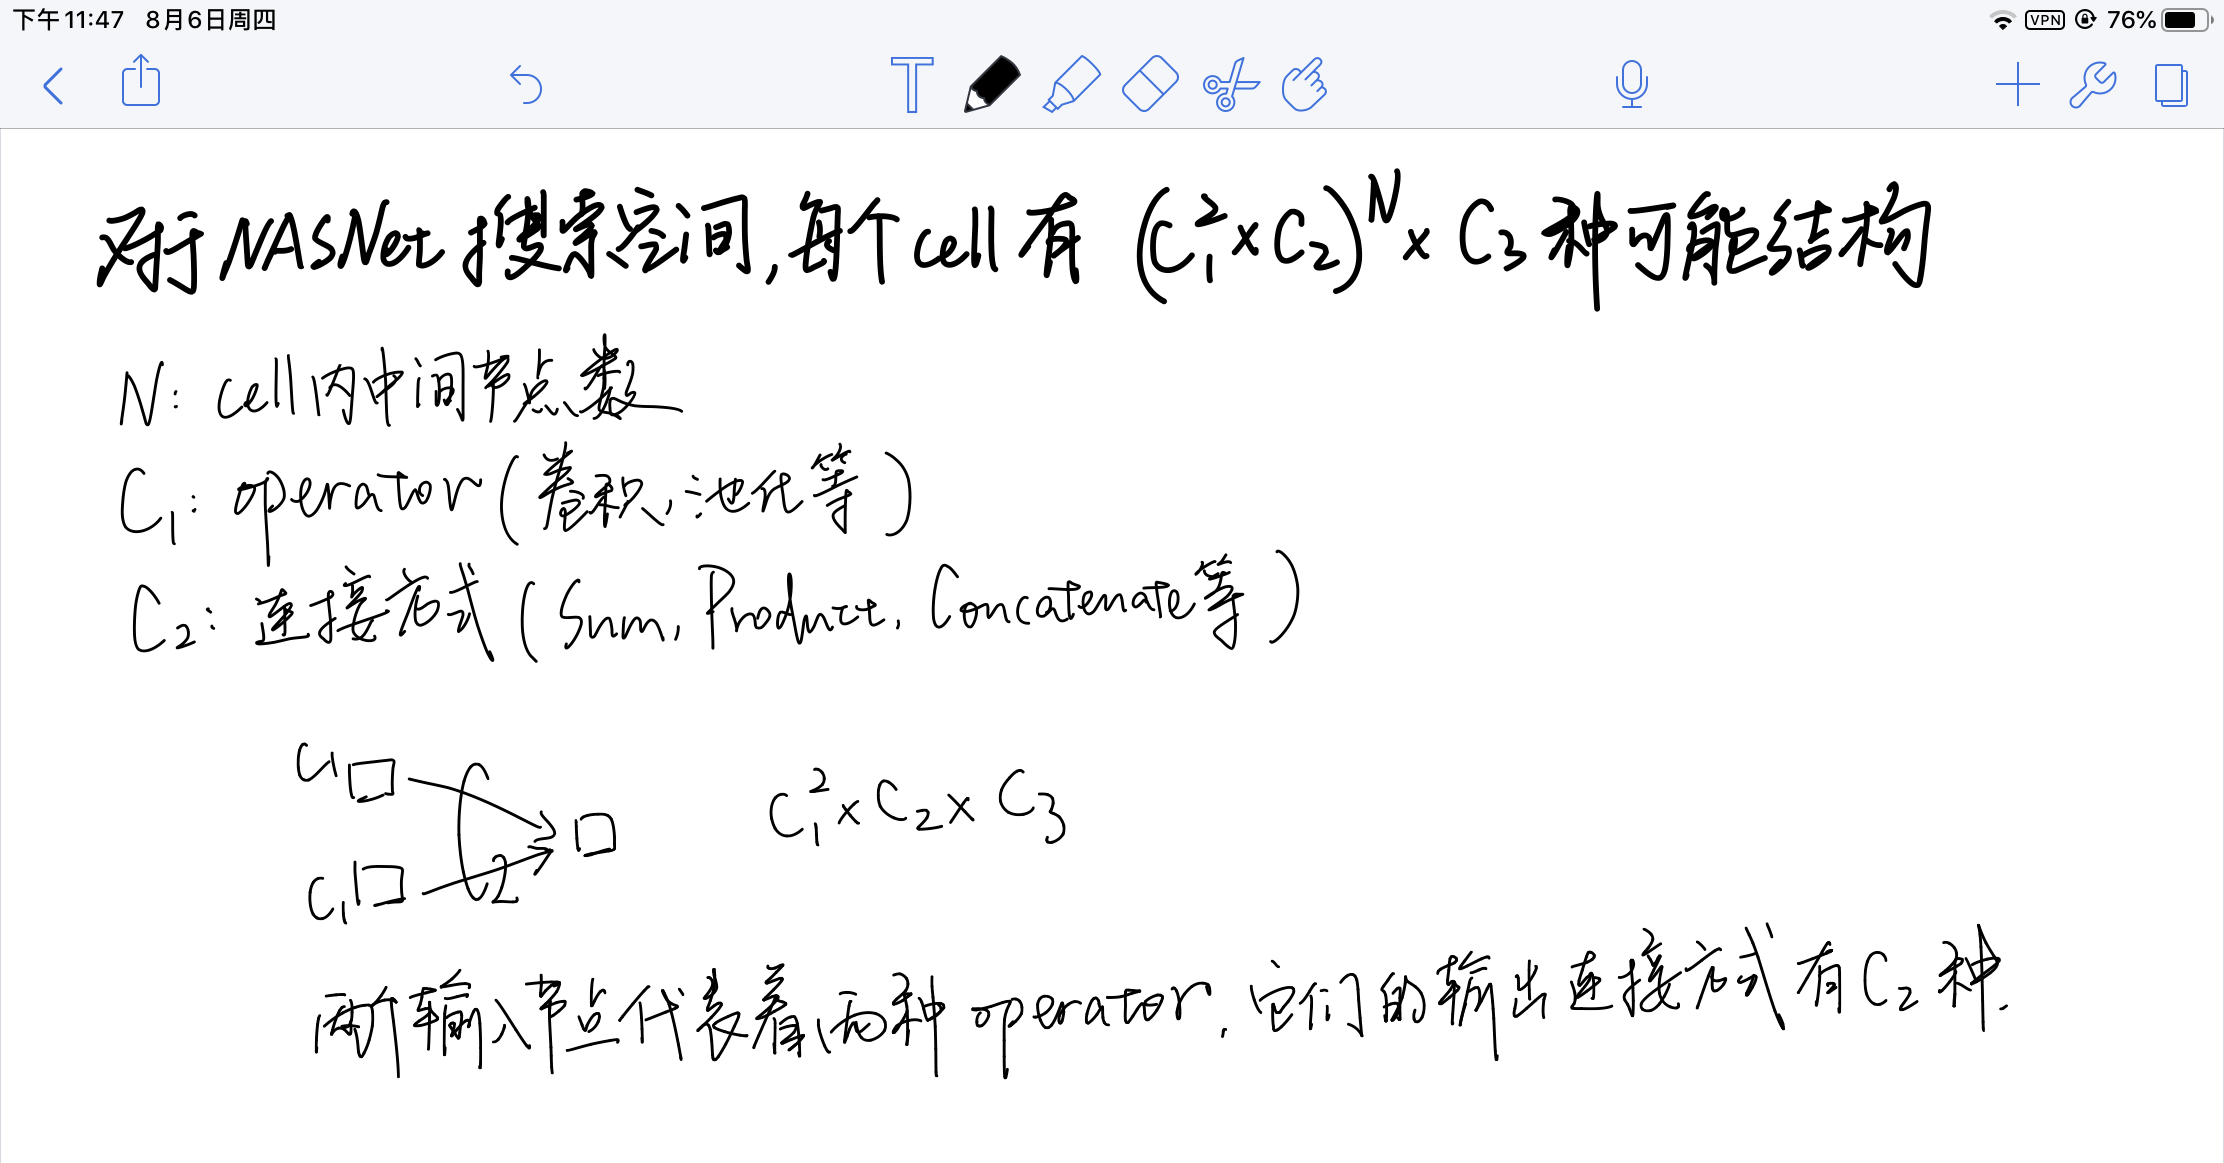 下午11:47 8月6日周四 VPN 76%
对于NASNet搜索空间,每个cell有 (C₁²×C₂)ᴺ × C₃ 种可能结构
N: cell内中间节点数
C₁: operator(卷积,池化等)
C₂: 连接方式(Sum, Product, Concatenate等)
C₁
C₁
C₂
C₁²×C₂×C₃
两个输入节点代表着两种operator, 它们的输出连接方式有C₂种.